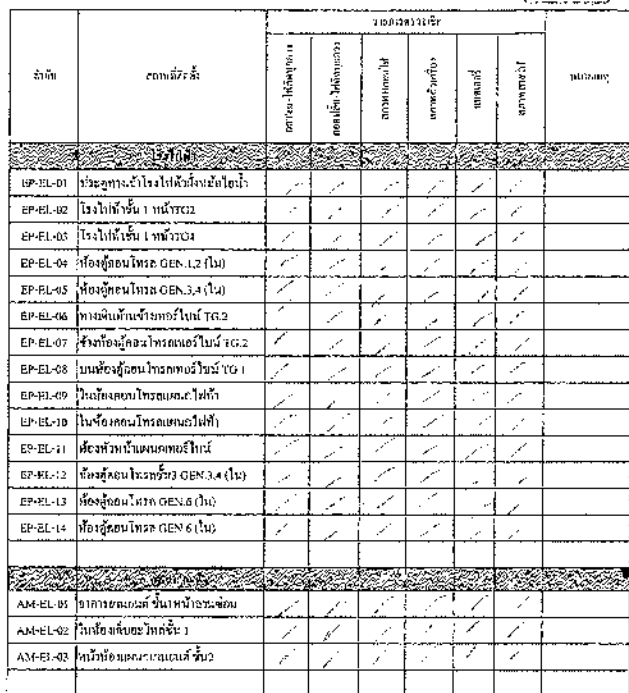 รายการตรวจเช็ค
ลำดับ สถานที่ติดตั้ง สภาพหลอดไฟ สภาพตัวเครื่อง แบตเตอรี่ หมายเหตุ
โรงไฟฟ้า
EP-EL-01 ประตูทางเข้าโรงไฟฟ้าฝั่งหม้อไอน้ำ
EP-EL-02 โรงไฟฟ้าชั้น 1 หน้าTG2
EP-EL-03 โรงไฟฟ้าชั้น 1 หน้าTG4
EP-EL-04 ห้องตู้คอนโทรล GEN.1,2 (ใน)
EP-EL-05 ห้องตู้คอนโทรล GEN.3,4 (ใน)
EP-EL-06 ทางเดินด้านซ้ายเทอร์ไบน์ TG.2
EP-EL-07 ข้างห้องตู้คอนโทรลเทอร์ไบน์ TG.2
EP-EL-08 บนห้องตู้คอนโทรลเทอร์ไบน์ TG
EP-EL-09 ในห้องคอนโทรลแผนกไฟฟ้า
EP-EL-10 ในห้องคอนโทรลแผนกไฟฟ้า
EP-EL-11 ห้องหัวหน้าแผนกเทอร์ไบน์
EP-EL-12 ห้องตู้คอนโทรลชั้น3 GEN.3,4 (ใน)
EP-EL-13 ห้องตู้คอนโทรล GEN.6 (ใน)
EP-EL-14 ห้องตู้คอนโทรล GEN 6 (ใน)
AM-EL-01 อาคารยานยนต์ ชั้น1หน้างานซ่อม
AM-EL-02 ในห้องเก็บอะไหล่ชั้น 1
AM-EL-03 หน้าห้องแผนกยานยนต์ ชั้น2